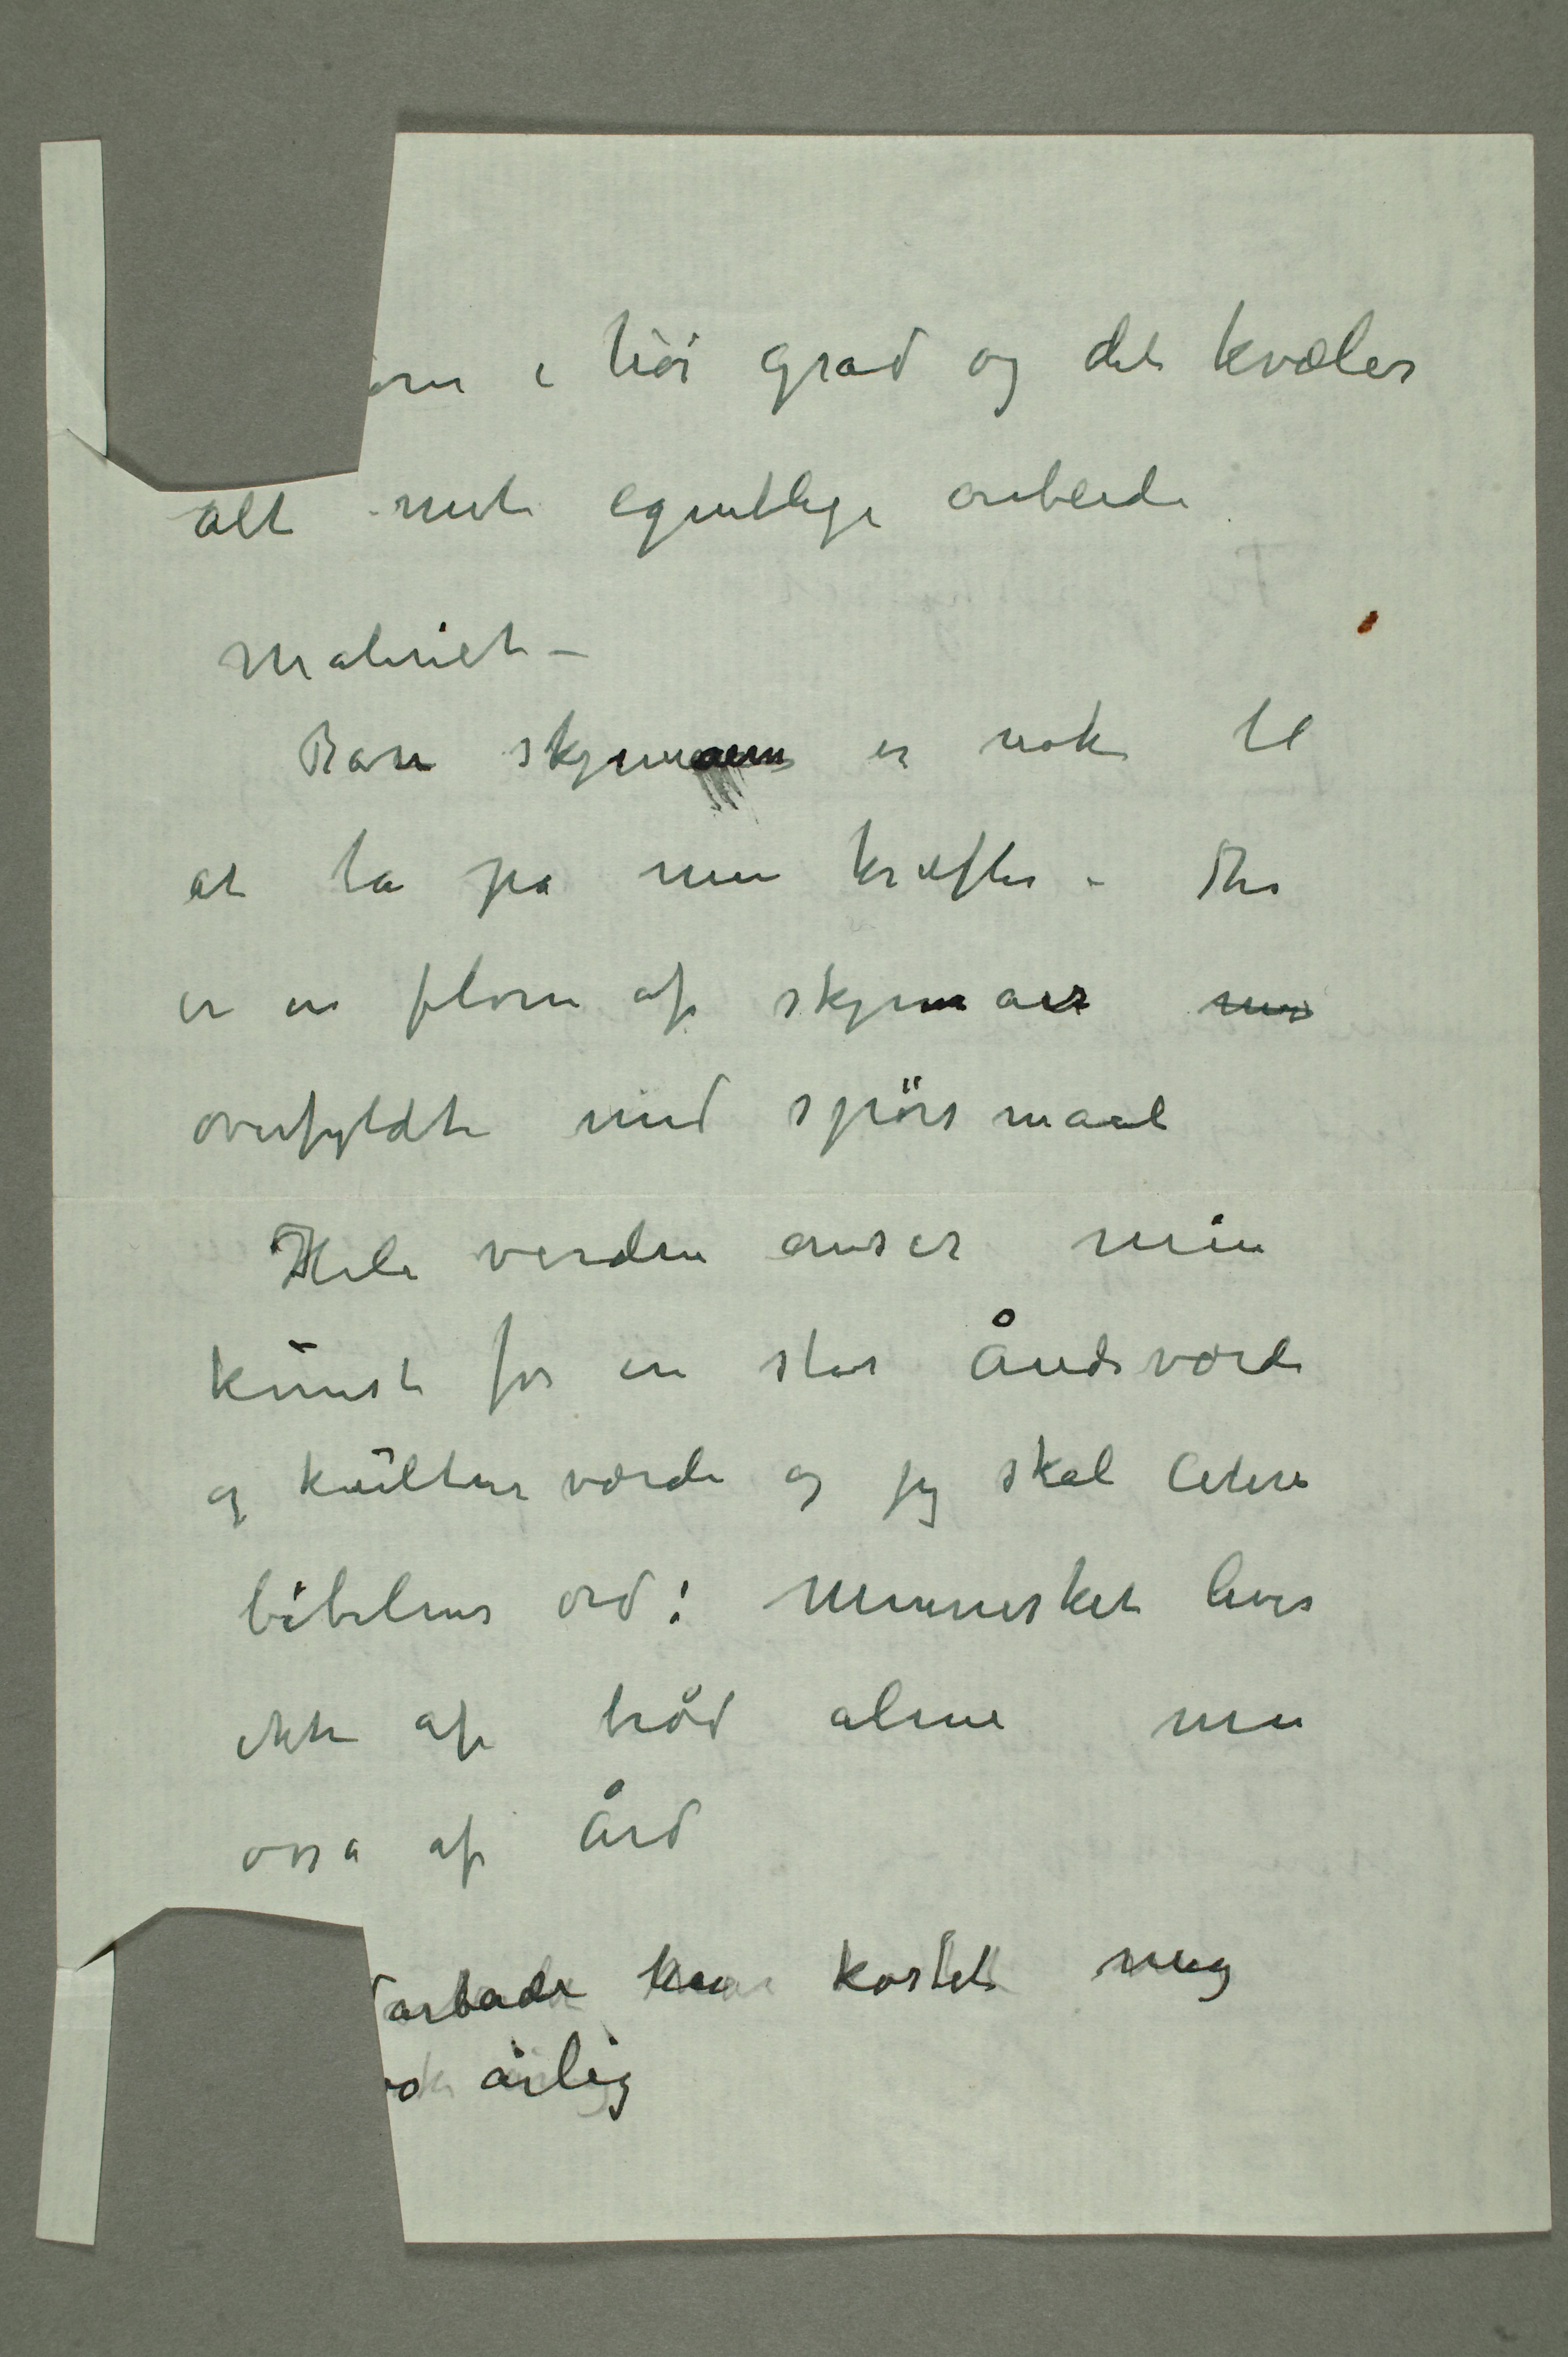 i høi grad og det kvæler
alt mit egentlige arbeide
Maleriet –
Bare skjemaen er nok til
at ta på mine kræfter – Der
er en flom af skjemaer
overfyldte med spörsmaal
Hele verden anser min
kunst for en stor Åndsværdi
og kulturværdi og jeg skal citere
bibelens ord: Mennesket lever
ikke af brød alene men
osså af Ånd
arbade har kostet mig
årlig